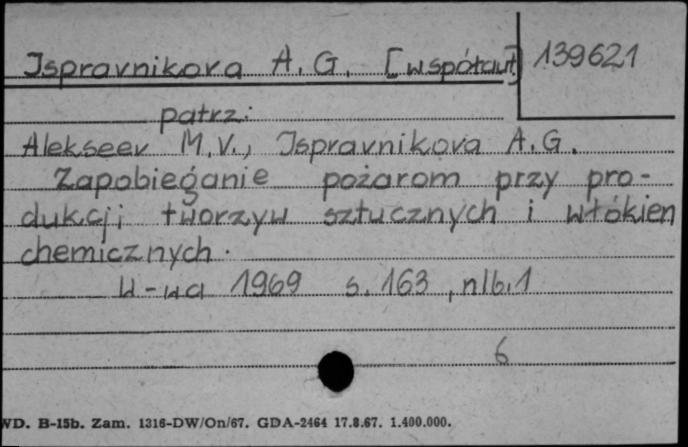 Ispravnikova A. G. [współaut] 139621
patrz:
Alekseev M.V., Ispravnikova A.G.
Zapobieganie pożarom przy pro-
dukcji tworzyw sztucznych i włókien
chemicznych.
W-wa 1969 s. 163, nlb. 1
6
WD. B-15b. Zam. 1316-DW/On/67. GDA-2464 17.8.67. 1.400.000.